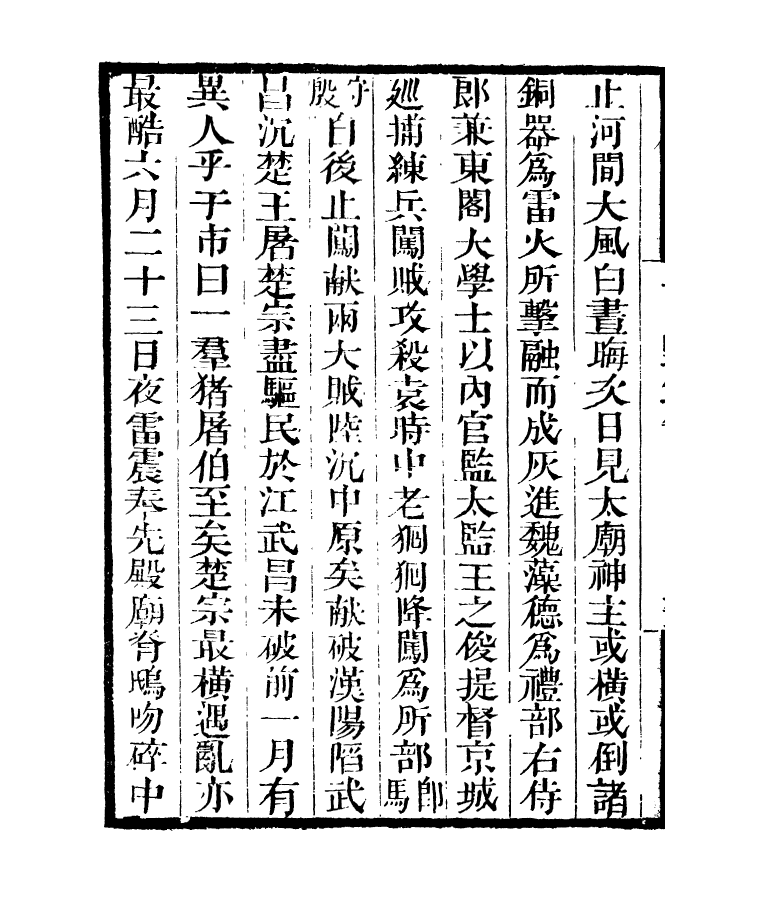 止河間大風白晝晦次日見太廟神主或橫或倒諸
銅器爲雷火所擊融而成灰進魏藻德爲禮部右侍
郎兼東閣大學士以內官監太監王之俊提督京城
廵捕練兵闖賊攻殺袁時中老𤞑𤞑降闖爲所部郎馬
守殷自後止闖献兩大賊陸沉中原矣献破漢陽陷武
昌沉楚王屠楚宗盡驅民於江武昌未破前一月有
異人乎于市曰一羣猪屠伯至矣楚宗最橫遇亂亦
最酷六月二十三日夜雷震奉先殿廟脊鴟吻碎中